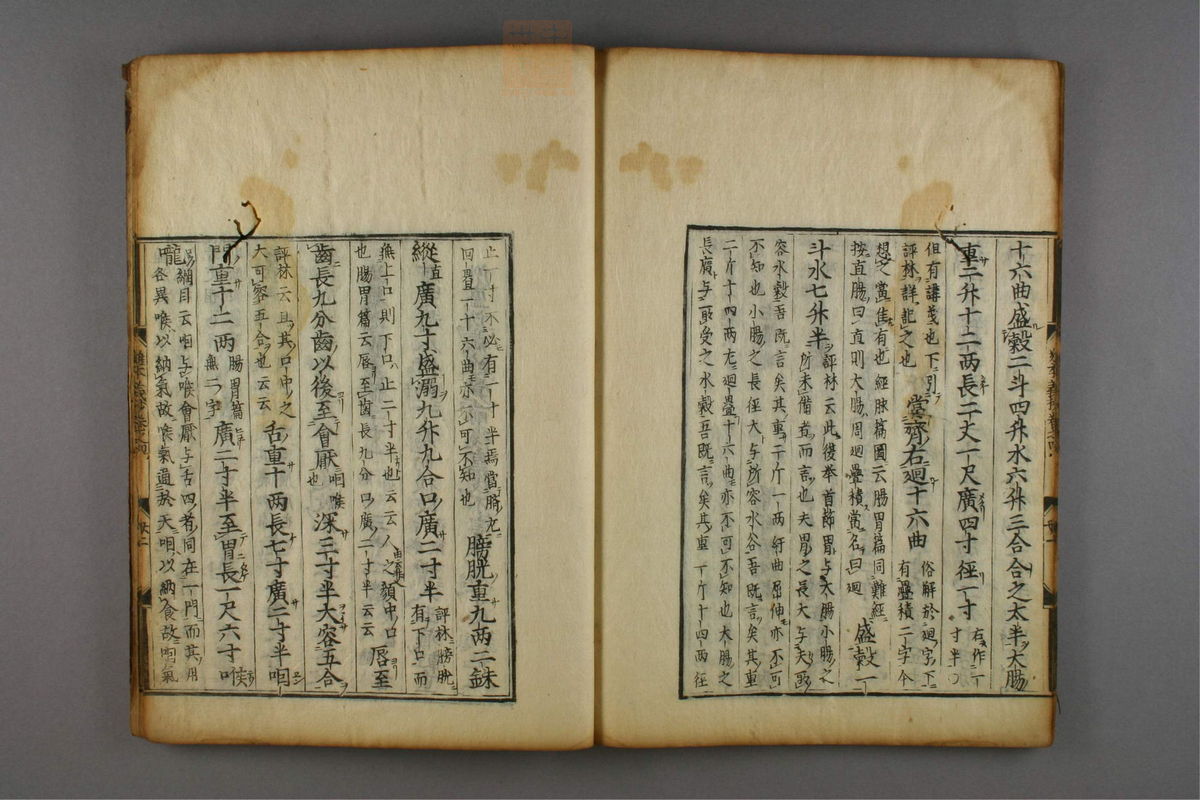 十六曲盛穀二斗四升水六升三合合之太半大腸
重二斤十二両長二丈一尺廣四寸徑一寸右作一寸半
但有講義也下引
評林詳註之也
當齊右廻十六曲
俗解於廻字下
有疊積二字今
按直腸曰直則大腸周廻疊積當名曰廻
盛穀一
斗水七升半
評林云此復挙首節胃与大腸小腸之
所未備者而言也夫胃之長大与夫
容水穀吾既言矣其重二斤一両紆曲屈伸亦不可
不知也小腸之長徑大与所容水谷吾既言矣其重
二斤十四両左廻疊十六曲亦不可不知也大腸之
長廣与所受之水穀吾既言矣其重二斤十二両徑
止一寸不必有一寸半焉當臍右
回疊一十六曲亦不可不知也
膀胱重九両二銖
縱廣九寸盛溺九升九合口廣二寸半
評林膀胱
有下口而
無上口則下口止二寸半也云云
人之頷中口
唇至
也腸胃篇云唇至齒長九分口廣二寸半云云
齒長九分齒以後至會厭
咽喉也
深三寸半大容五合
評林云且其口中之
大可容五合也云云
舌重十両長七寸廣二寸半咽
門重十二両
腸胃篇
無二字
廣二寸半至胃長一尺六寸
喉
嚨
綱目云咽与喉會厭与舌四者同在一門而其用
各異喉以納氣故喉氣通於天咽以納食故咽氣